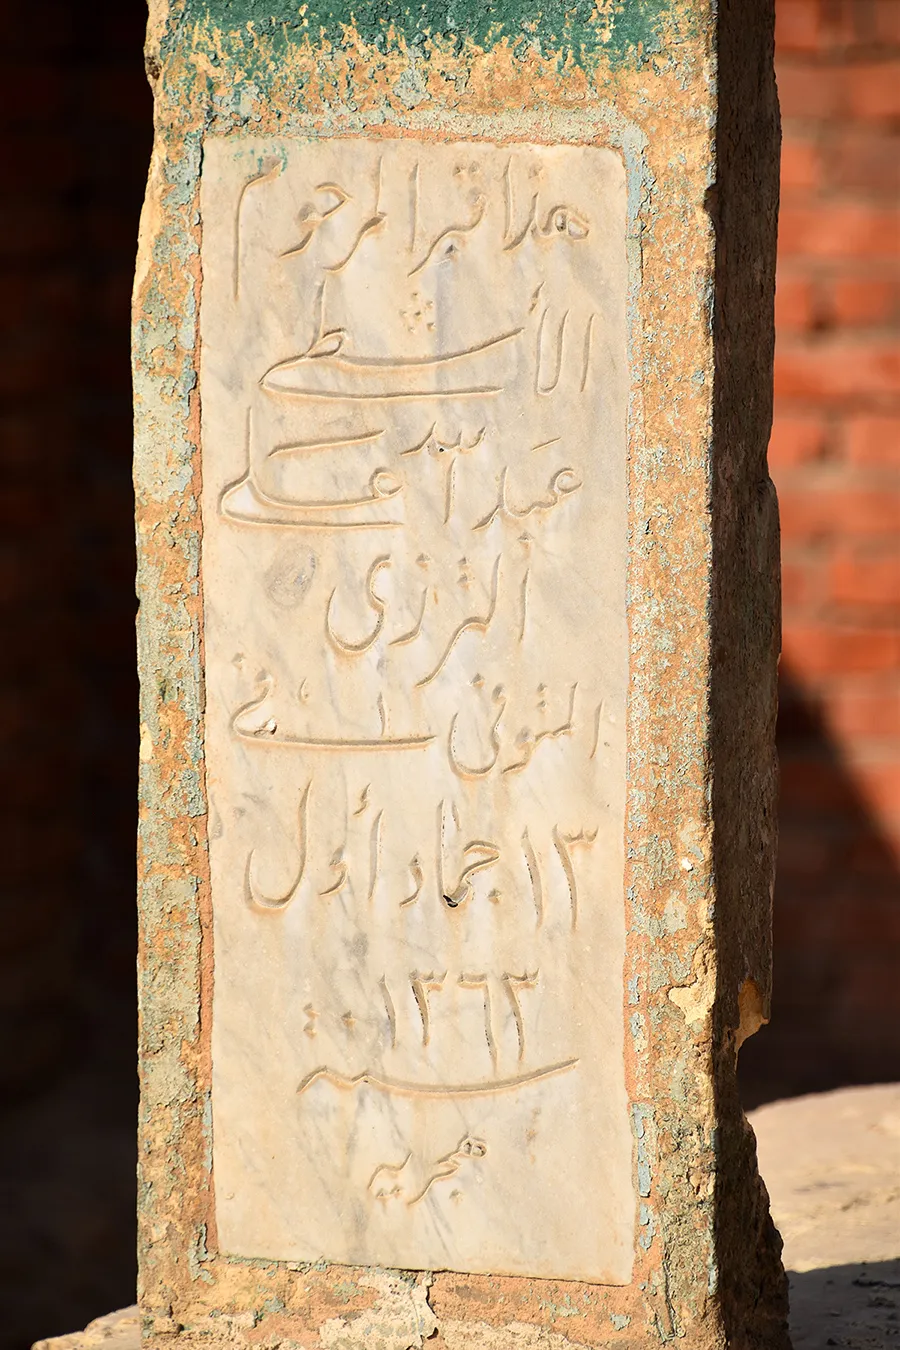 هذا قبر المرحوم
الأسطى
عبد السيد على
الترزى
المتوفى فى
١٣ جماد أول
١٣٦٣
سنة
هجرية